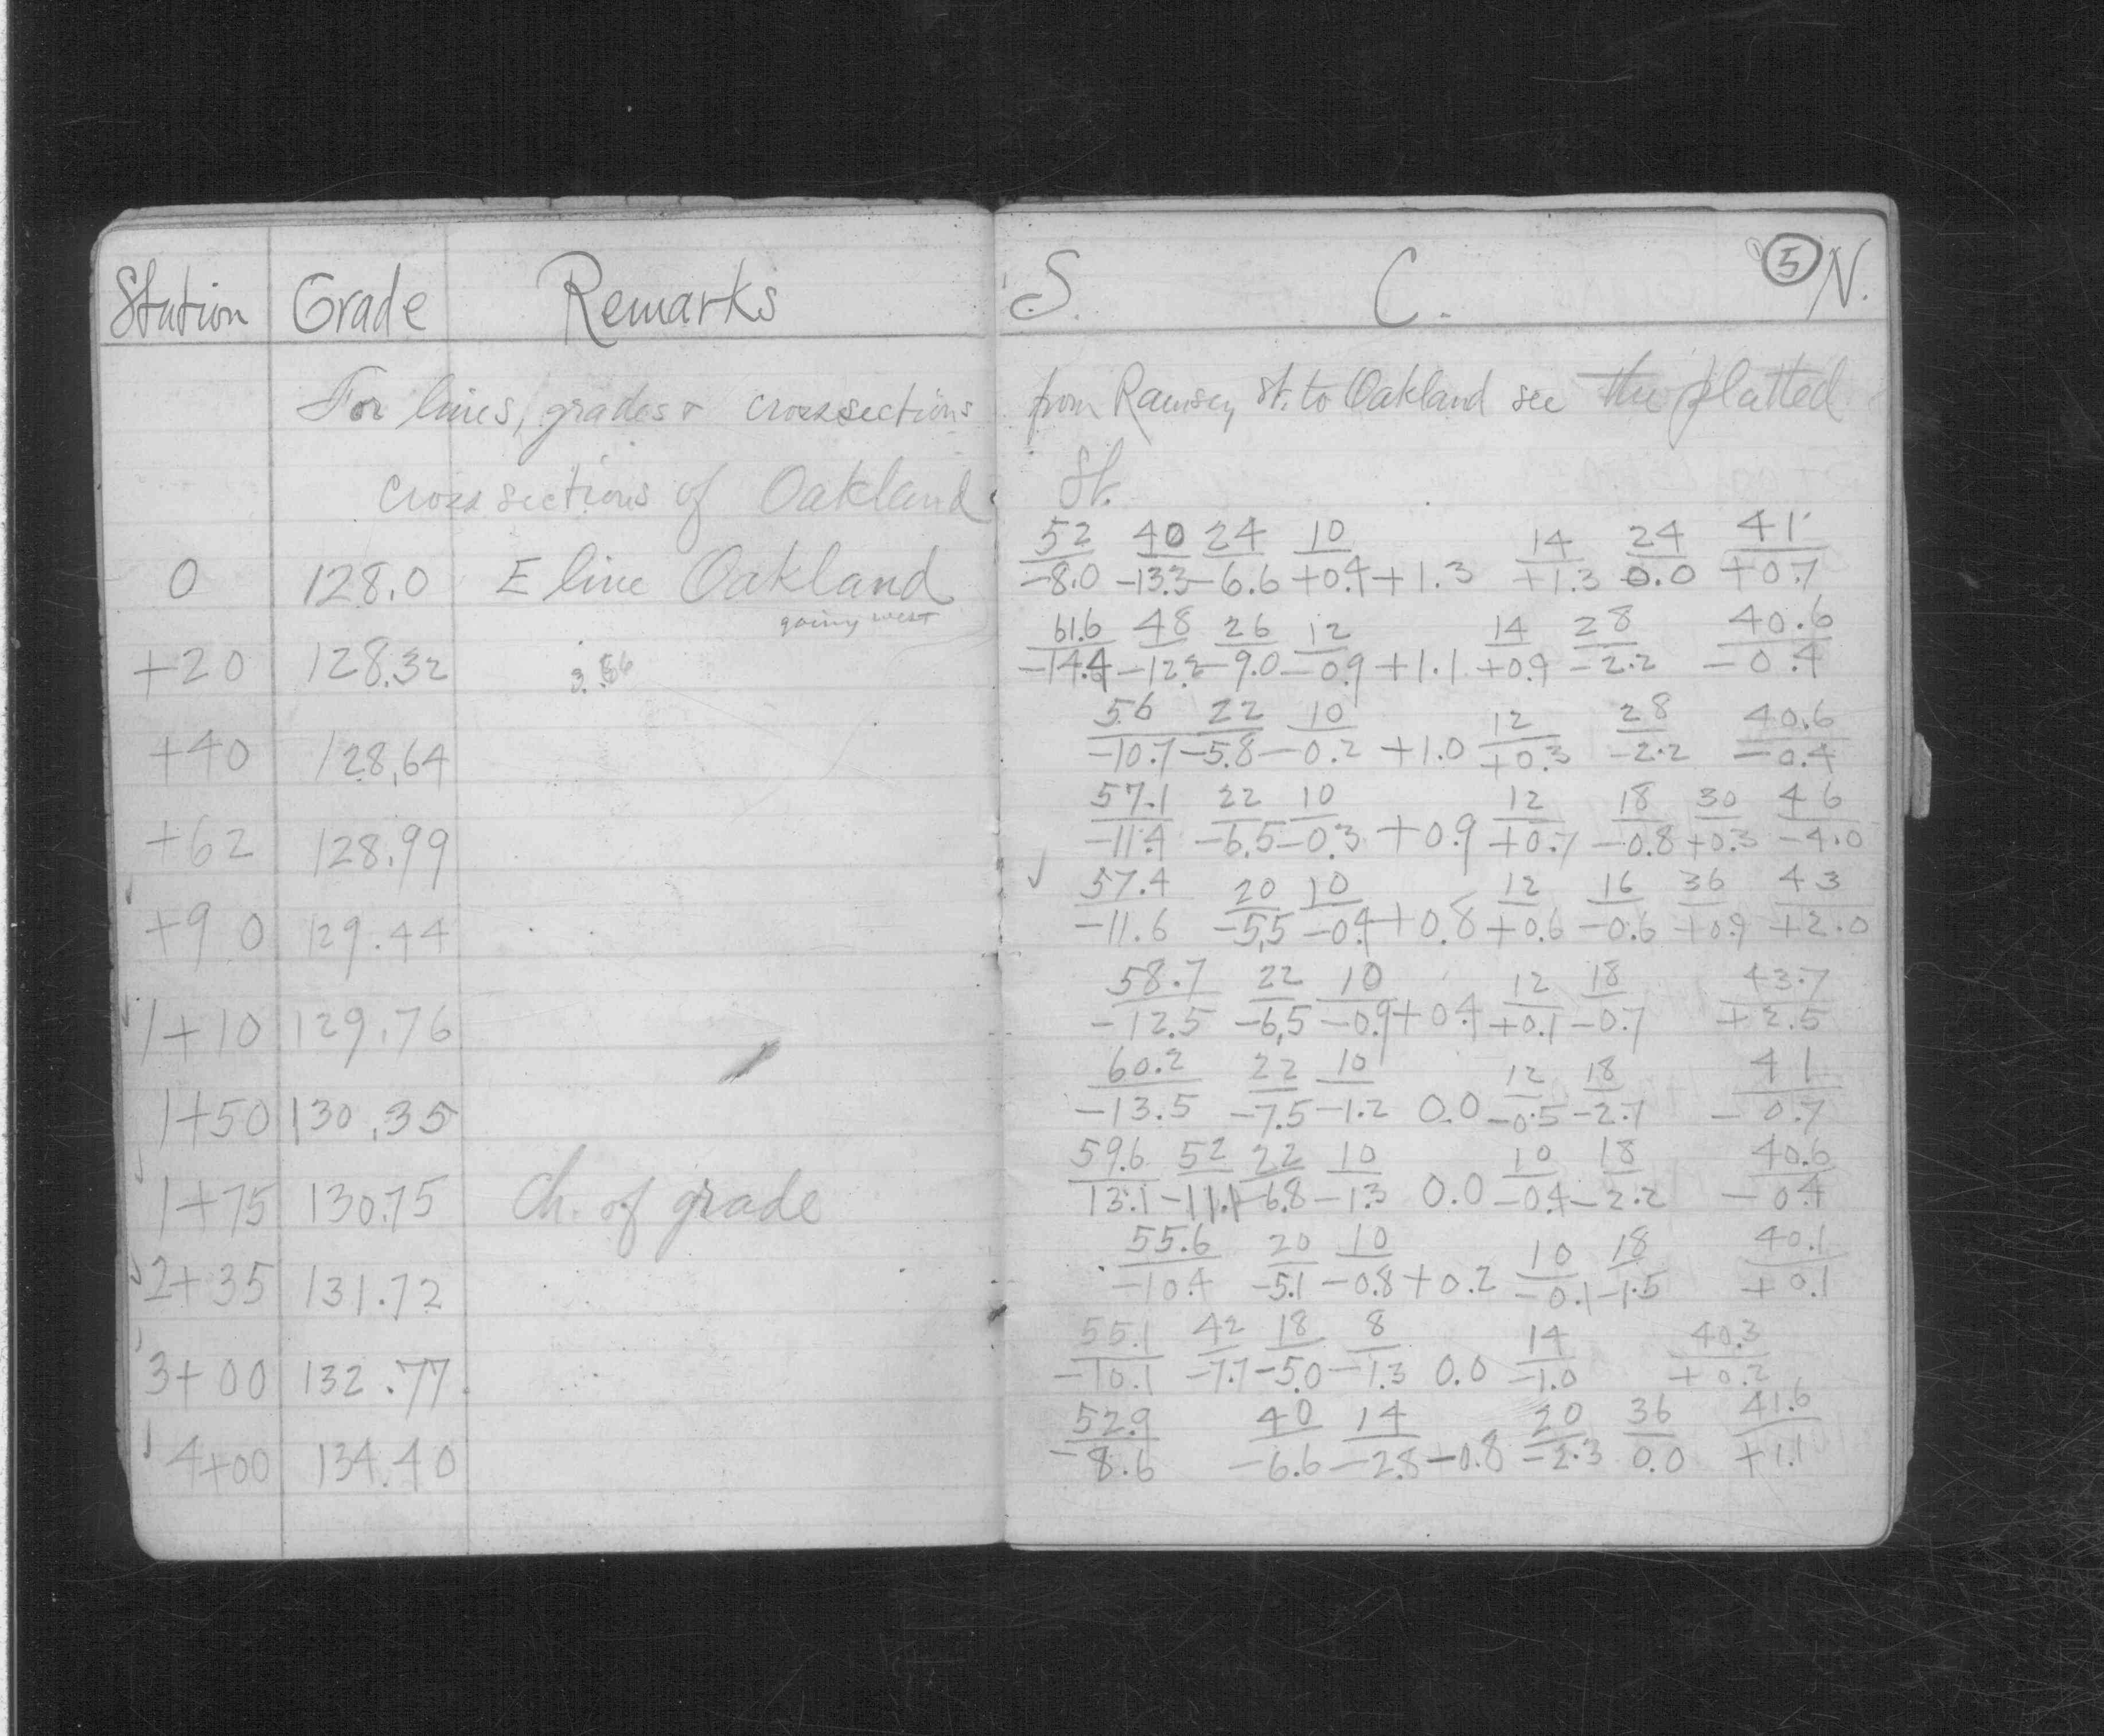 Station Grade Remarks S. C. 5 N.
For lines, grades & crosssections from Ramsey St. to Oakland see the platted
cross sections of Oakland St.
52 40 24 10 14 24 41
0 128.0 E line Oakland -8.0 -13.3 -6.6 +0.4 +1.3 +1.3 0.0 +0.7
going west
61.6 48 26 12 14 28 40.6
+20 128.32 -14.4 -12.2 -9.0 -0.9 +1.1 +0.9 -2.2 -0.4
56 22 10 12 28 40.6
+40 128.64 -10.7 -5.8 -0.2 +1.0 +0.3 -2.2 -0.4
57.1 22 10 12 18 30 46
+62 128.99 -11.4 -6.5 -0.3 +0.9 +0.7 -0.8 +0.3 -4.0
57.4 20 10 12 16 36 43
+90 129.44 -11.6 -5.5 -0.4 +0.8 +0.6 -0.6 +0.9 +2.0
58.7 22 10 12 18 43.7
1+10 129.76 -12.5 -6.5 -0.9 +0.4 +0.1 -0.7 +2.5
60.2 22 10 12 18 41
1+50 130.35 -13.5 -7.5 -1.2 0.0 -0.5 -2.7 -0.7
59.6 52 22 10 10 18 40.6
1+75 130.75 Ch. of grade 13.1 -11.1 -6.8 -1.3 0.0 -0.4 -2.2 -0.4
55.6 20 10 10 18 40.1
2+35 131.72 -10.4 -5.1 -0.8 +0.2 -0.1 -1.5 +0.1
55.1 42 18 8 14 40.3
3+00 132.77 -10.1 -7.7 -5.0 -1.3 0.0 -1.0 +0.2
52.9 40 14 20 36 41.6
4+00 134.40 -8.6 -6.6 -2.8 -0.8 -2.3 0.0 +1.1